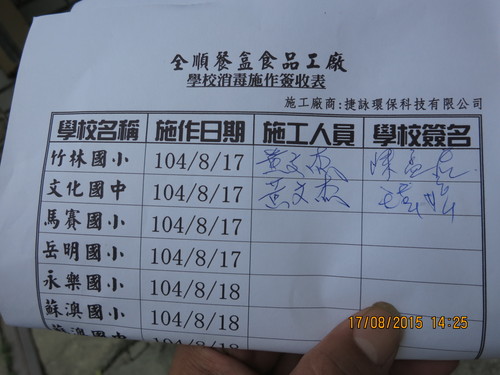 全順餐盒食品工廠
學校消毒施作簽收表
施工廠商:捷詠環保科技有限公司
學校名稱 施作日期 施工人員 學校簽名
竹林國小 104/8/17 黃文杰
文化國中 104/8/17 黃文杰
馬賽國小 104/8/17
岳明國小 104/8/17
永樂國小 104/8/18
蘇澳國小 104/8/18
104/8/18
17/08/2015 14:25